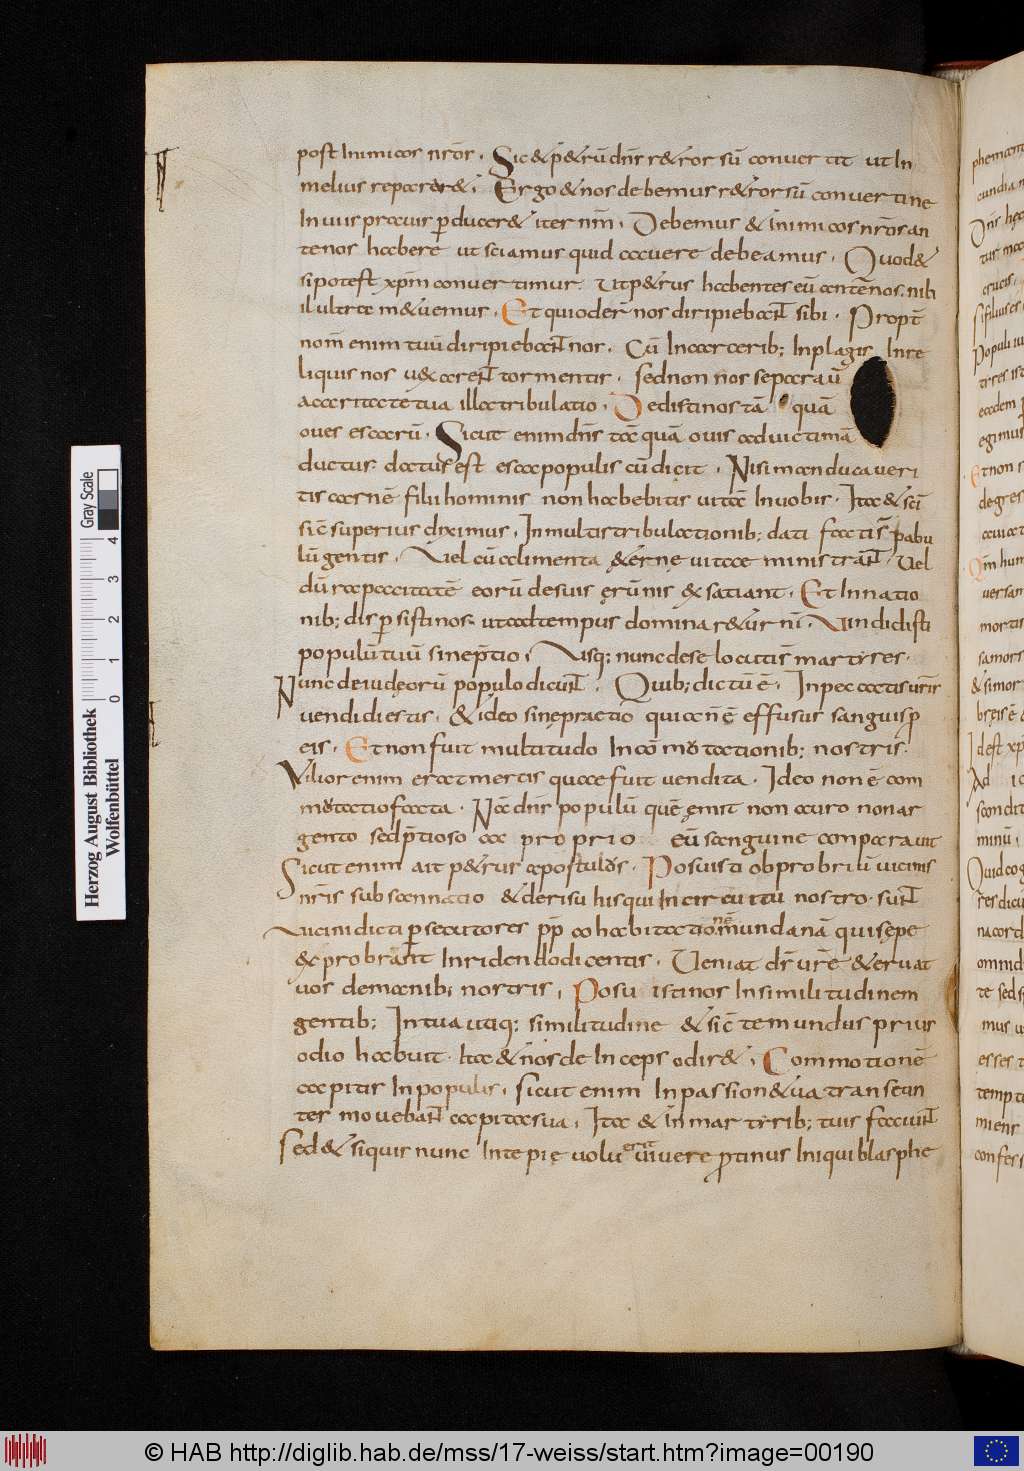 post Inimicos nr̄os. Sic & p&rū dn̄s r&rorsū conuertit ut In
melius reparar&; Ergo & nos debemus r&rorsū conuertine
In uius prauis p̄ducer& iter nr̄m. Debemus & Inimicos nr̄os an
tenos habere ut sciamus quid cauere debeamus. Quod&
si potest xp̄m conuertimur. Ut p&rus habentes eū antenos, nihi
il ultra m&uemus. Et qui oder̄ nos diripiebant sibi. Propt̄
nom̄ enim tuū diripiebant nos. Cū In carcerib; In plagis In re
liquis nos uexarent tormentis. sed non nos separauit
a caritate tua illa tribulatio. Dedisti nos tā quā
oues escarū. Sicut enim dn̄s tā quā ouis ad uictimā
ductus. datus est esca populis cū dicit. Nisi manducaueri
tis carnē filii hominis non habebitis uitā In uobis. Ita & sc̄i
sic̄ superius diximus. In multis tribulationib; dati facti s̄ pabu
lū gentis. Vel cū alimenta &erne uitae ministrant. Vel
dū rapacitatē eorū de suis ęrūnis & satiant. Et In natio
nib; dispersisti nos. ut ad tempus dominar&ur nr̄i. Vindidisti
populū tuū sine p̄tio; Vsq; nunc de se locuti s̄ martyres.
Nunc de iudęorū populo dicunt. Quib; dictū ē. In peccatis ur̄is
uendidi estis. & ideo sine praetio quia n̄ ē effusus sanguis p̄
eis. Et non fuit multitudo In cōmutationib; nostris.
Vilior enim erat mertis quae fuit uendita. Ideo non ē com
mutatio facta. Nā dn̄s populū quē emit non auro non ar
gento sed p̄tioso ac proprio eū sanguine comparauit
Sicut enim ait p&rus apostulos. Posuisti obprobriū uicinis
nr̄is subsannatio & derisu his qui In circuitu nostro. sunt
Vicini dicti p̄secutores p̄p̄ cohabitationē mundanā qui sępe
exprobrant Inridendo dicentis. Veniat ds̄ ur̄ē & eruat
uos demanib; nostris; Posuisti nos In similitudinem
gentib; In tua utiq; similitudine & sic̄ te mundus prius
odio habuit. Ita & nos deInceps odir&; Commotionē
capitis In populis. sicut enim In passion& ua transeun
ter mouebant capita sua. Ita & In martyrib; tuis faciunt
sed & siquis nunc Inte pię uoluerit uiuere p̄tinus Iniqui blasphe
Gray Scale
0 1 2 3 4
Herzog August Bibliothek
Wolfenbüttel
© HAB http://diglib.hab.de/mss/17-weiss/start.htm?image=00190